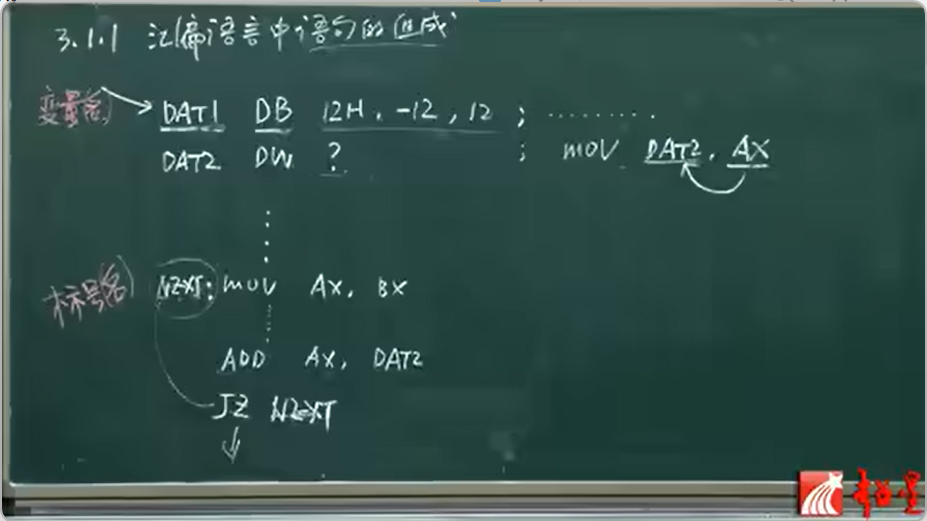 3.1.1 汇编语言中语句的组成
变量名 DAT1 DB 12H, -12, 12 ; ………
DAT2 DW ? ; MOV DAT2, AX
标号(名) NEXT: MOV AX, BX
ADD AX, DAT2
JZ NEXT